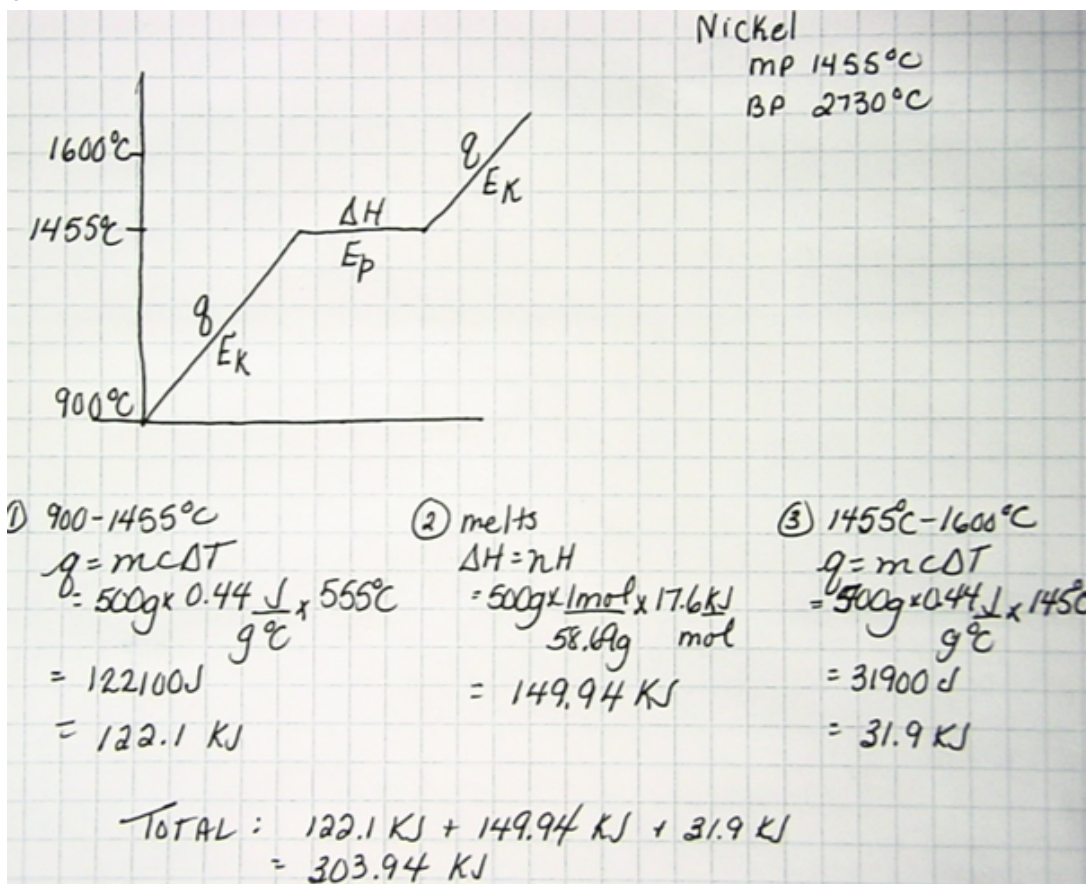 Nickel
mp 1455°C
BP 2730°C
1600°C
1455°C
900°C
q
EK
ΔH
Ep
q
EK
① 900-1455°C
q = mcΔT
= 500g x 0.44 J/g°C x 555°C
= 122100J
= 122.1 KJ
② melts
ΔH = nH
= 500g x 1mol/58.69g x 17.6 KJ/mol
= 149.94 KJ
③ 1455°C-1600°C
q = mcΔT
= 500g x 0.44 J/g°C x 145°C
= 31900 J
= 31.9 KJ
TOTAL : 122.1 KJ + 149.94 KJ + 31.9 KJ
= 303.94 KJ